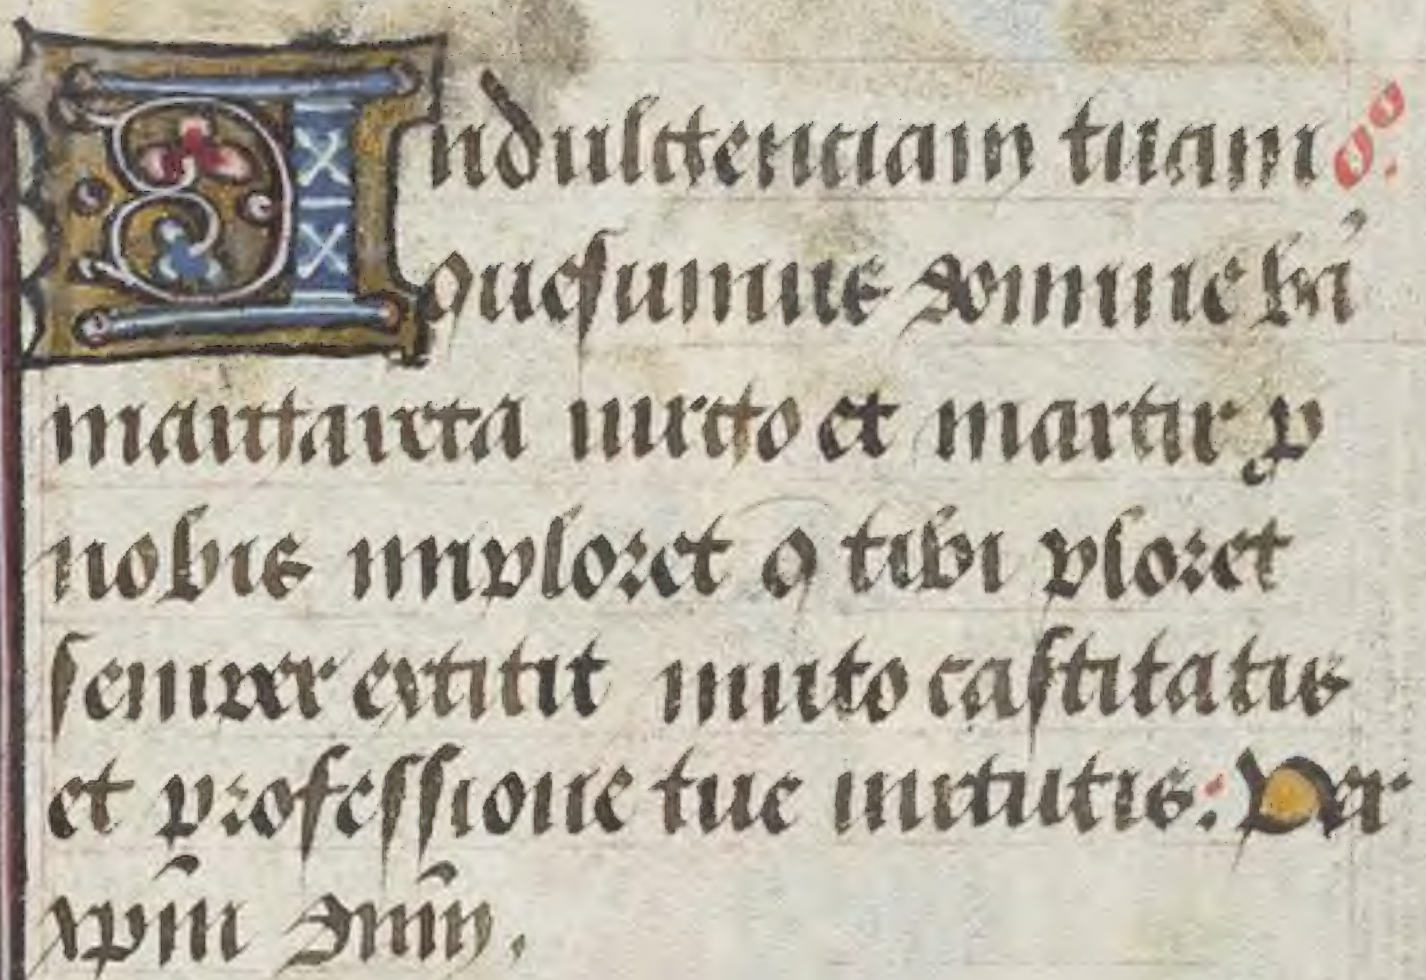 Indulgenciam tuam or̃o.
quesumus domine bã
margareta virgo et martir ꝓ
nobis imploret q tibi ploret
semper extitit mirito castitatis
et professione tue virtutis: Per
xp̃m dñm.